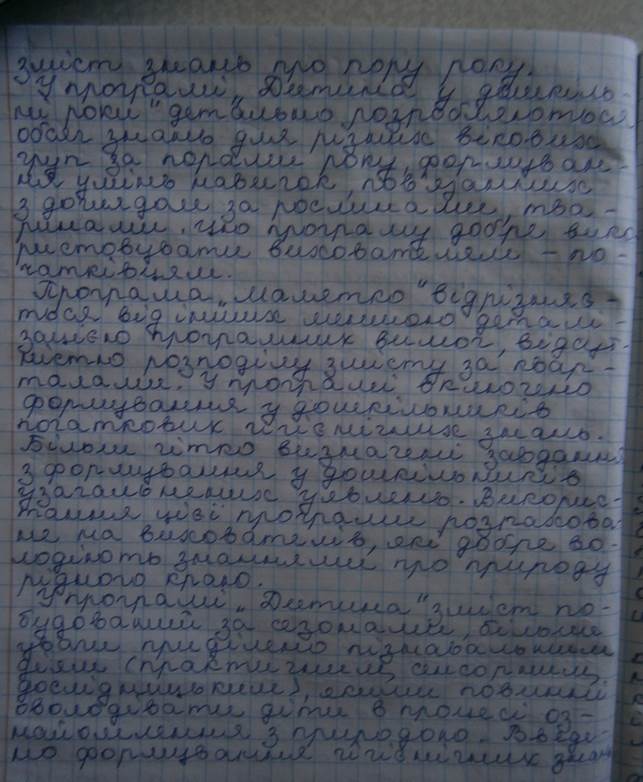 зміст знань про пору року.
У програмі „Дитина у дошкіль-
ні роки" детально розробляються
обсяг знань для різних вікових
груп за порами року, формуван-
ня умінь навичок, пов'язаних
з доглядом за рослинами, тва-
ринами. Цю програму добре вико
ристовувати вихователям - по-
чатківцям.
Програма „Малятко" відрізняє-
ться від інших меншою деталі-
зацією програмних вимог, відсут-
ністю розподілу змісту за квар-
талами. У програмі включено
формування у дошкільників
початкових гігієнічних знань.
Більш чітко визначені завдання
з формування у дошкільників
узагальнених уявлень. Викорис-
тання цієї програми розрахова
не на вихователів, які добре во-
лодіють знаннями про природу
рідного краю.
У програмі „Дитина" зміст по-
будований за сезонами, більше
уваги приділено пізнавальним
діям (практичним, сенсорним,
дослідницьким), якими повинні
оволодівати діти в процесі оз-
найомлення з природою. Введе-
но формування гігієнічних знань